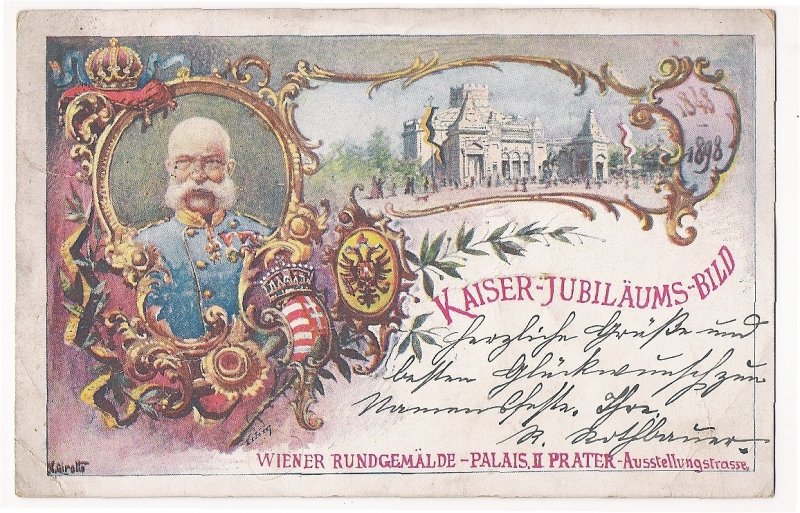 1848
-
1898
KAISER-JUBILÄUMS-BILD
herzliche Grüße und
besten Glückwunsch zum
Namensfeste. Ihre
R. Rothbauer.
WIENER RUNDGEMÄLDE-PALAIS, II PRATER-Ausstellungstrasse